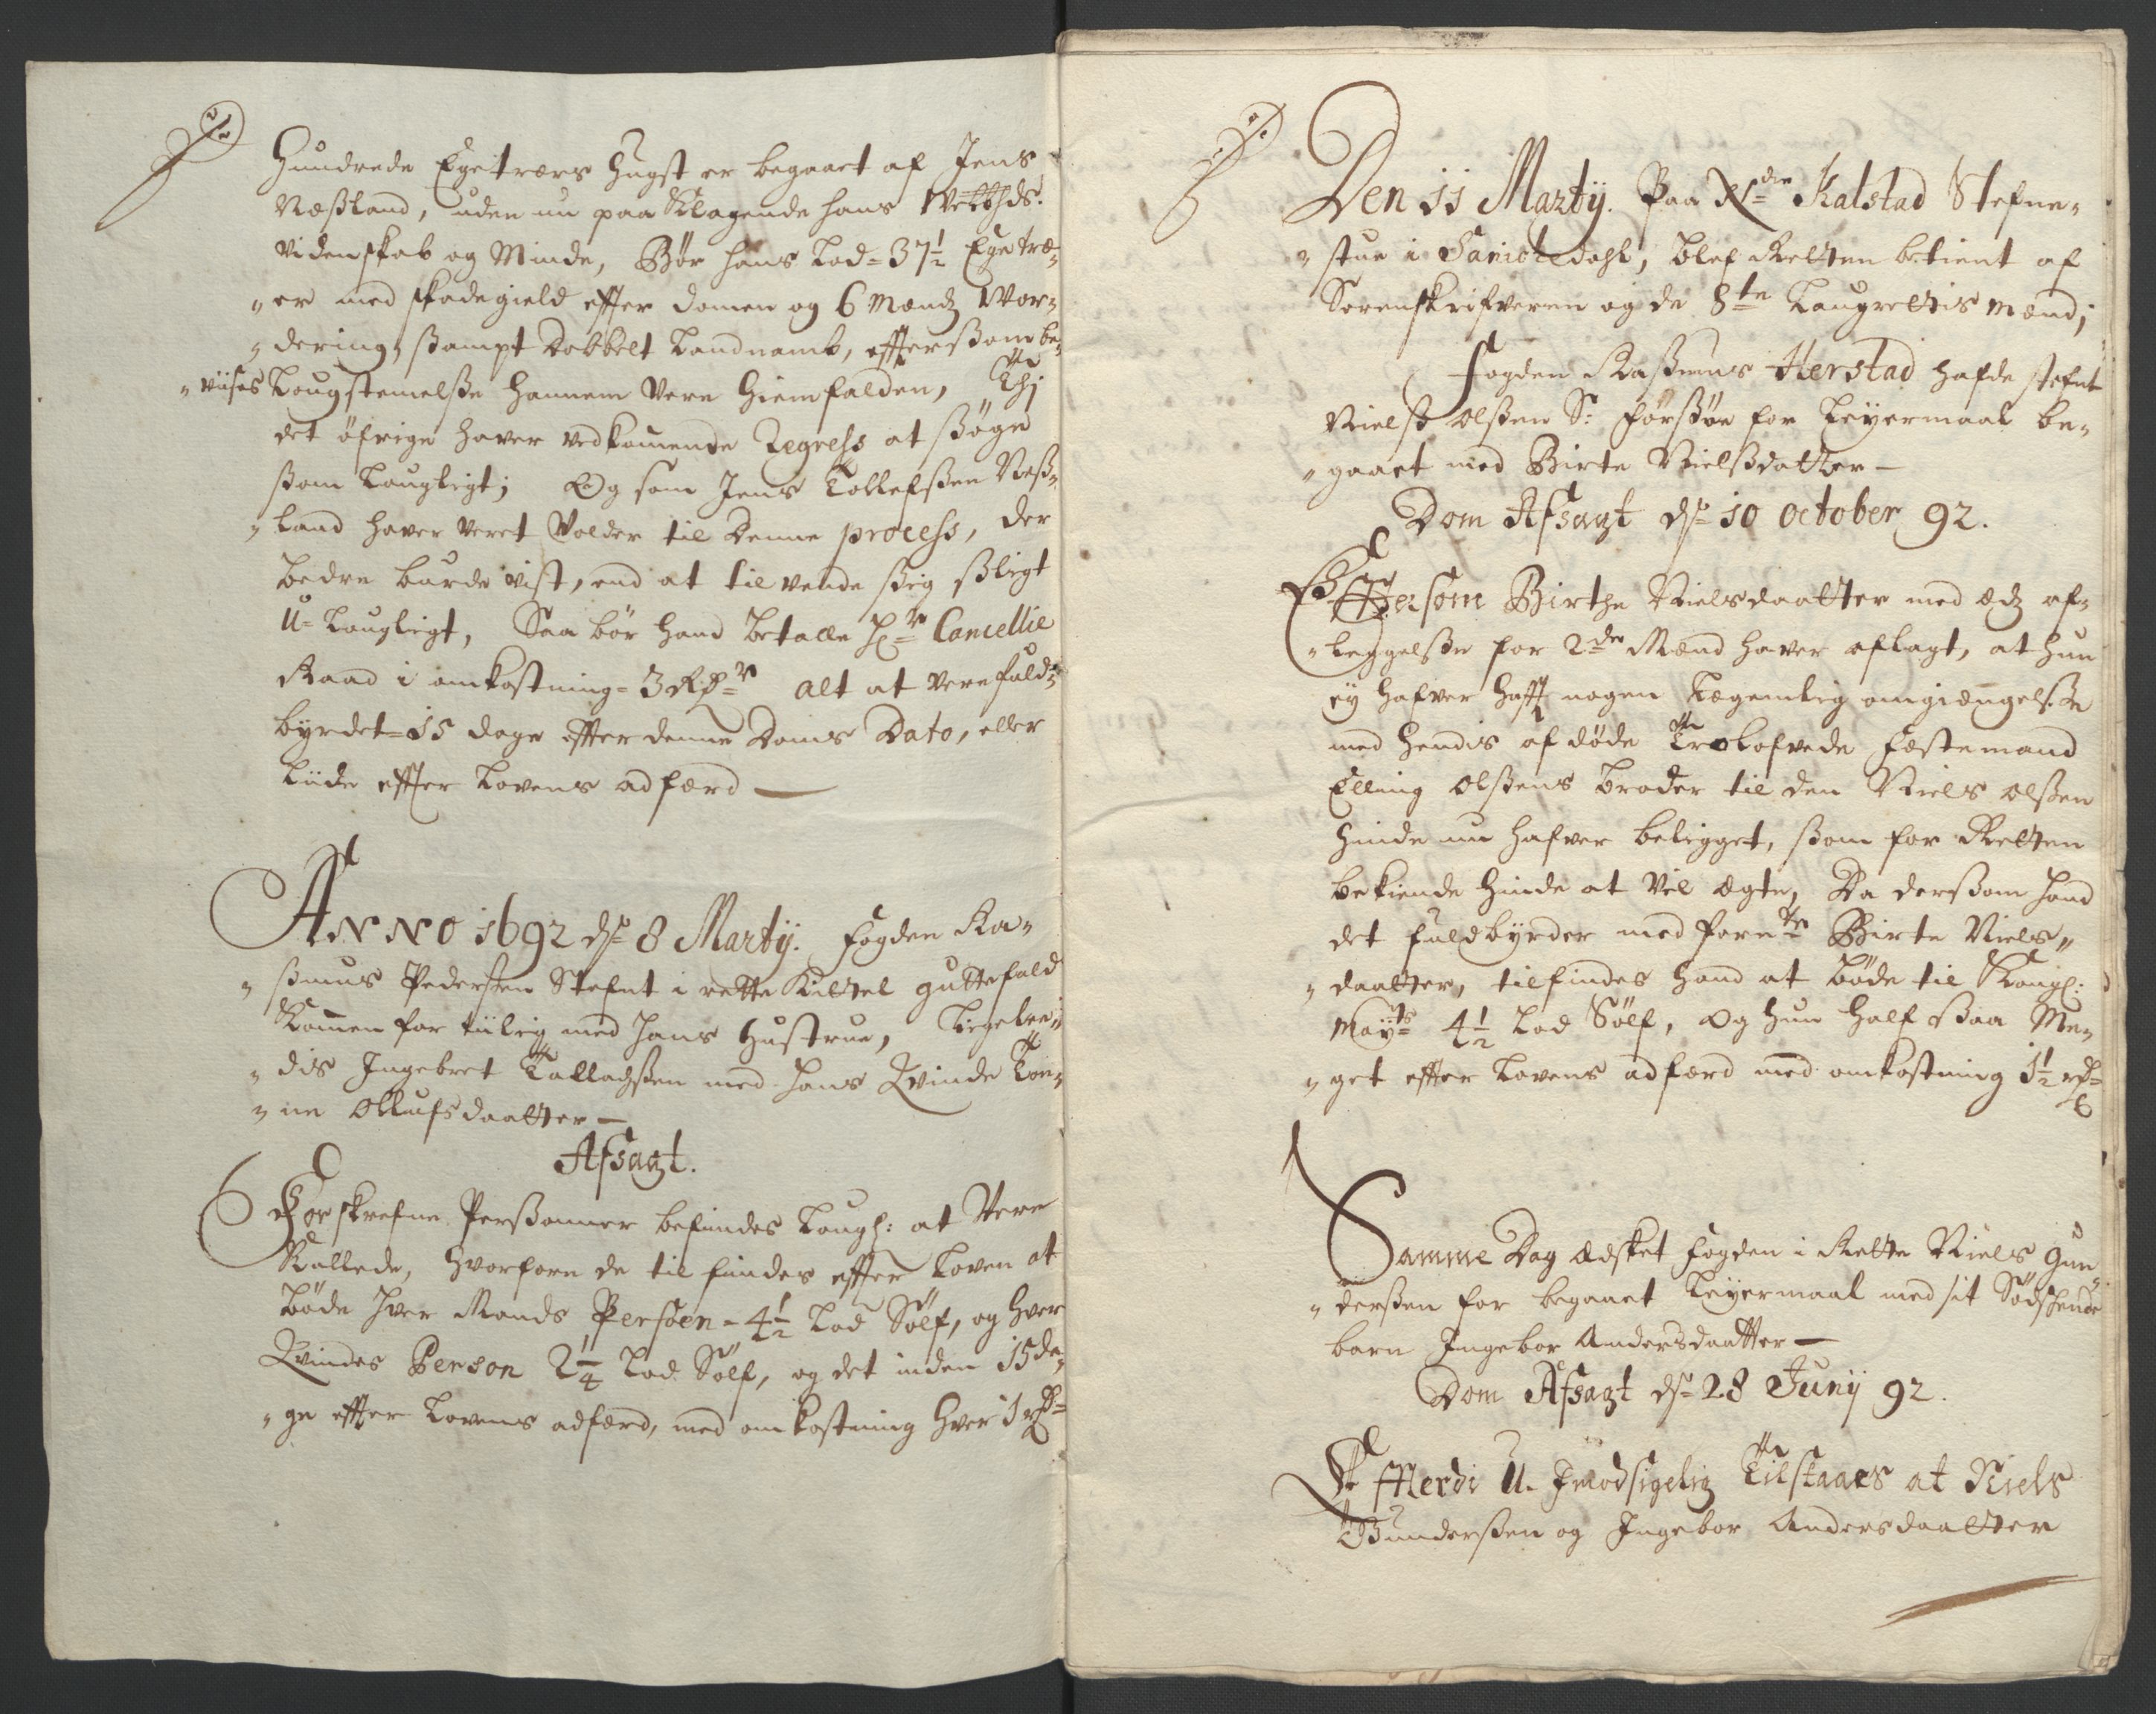 Hundrede Egetræers Hugst er begaaet af Jens
Næßland, uden nu paa Klagende hans Welbhds:
videnskab og Minde, Bør hans Lod = 37½ Ege træ„
„er med skadegield effter domen og 6 Mændz Wor„
„dering, ßampt Dobbelt Landnamb, effterßom be„
„viises Lougstemelße hannem Vere hiemfalden, Thj
det öfrige haver vedkomende Regress at ßøge
ßom Laugligt; Og som Jens Tollefßen Neß„
„land haver veret Volder til Denne process, der
bedre burde vist, end at tilvende ßig ßligt
U-Laugligt, Saa bør hand betalle Hr Cancellie
Raad i omkostning = 3 Rdr alt at vere fuld„
byrdet = 15 dage effter denne Doms Dato, eller
liide effter Lovens adfærd —
ANNO 1692 ds 8 Martij. Fogden Ra„
„ßmus Pederßen Stefnt i rette Kittel guttefald
Kommen for tiilig med hans Hustrue, Ligelee„
„dis Ingebret Talladsßen med hans Qvinde Ton„
„ne Ollufsdaatter —
Afsagt.
Forskrefne Perßonner befindes Laugl: at Vere
Kallede, hvorfore de til findes effter Loven at
bøde hver Mands Persoen - 4½ Lod Sølf, og hver
Qvindes Person 2¼ Lod Sølf, og det inden 15 da„
„ge effter Lovens adfærd, med omkostning hver 1 rdr
Den 11 Martij. Paa Kalstad Stefne„
„stue i Sanichedahl, blef Retten betient af
Sorenskrifveren og de 8te Laugrettis mænd;
Fogden Raßmus Herstad hafde stefnt
Nielß Olßen S: Forßøe for Leyermaal be„
„gaaet med Birte Nielßdatter —
Dom Afsagt ds 10 October 92.
Efftersom Birthe Nielsdaatter med æds af„
„leggelße for 2de Mænd haver aflagt, at hun
ey hafver hafft nogen Legemlig omgiængelße
med hendis afdøde Trolofvede Fæstemand
Elling Olßens broder til den Niels Olßen
hinde nu hafver beligget, ßom for Retten
bekiende hinde at Vil ægte, Da derßom hand
det fuldbyrder med forne Birte Niels„
„daatter, tilfindes hand at bøde til Kongl:
Mayts 4½ Lod Sølf, Og hun half ßaa Me„
„get effter Lovens adfærd med omkostning 1½ rdr
Samme Dag Ædsket Fogden i Rette Niels Gun„
„derßen for begaaet Leyermaal med sit Sødskende
barn Ingebor Andersdaatter —
Dom Afsagt ds 28 Junij 92.
Effterdi U-Imodsigelig Tilstaaes at Niels
Gunderßen og Ingebor Andersdaatter